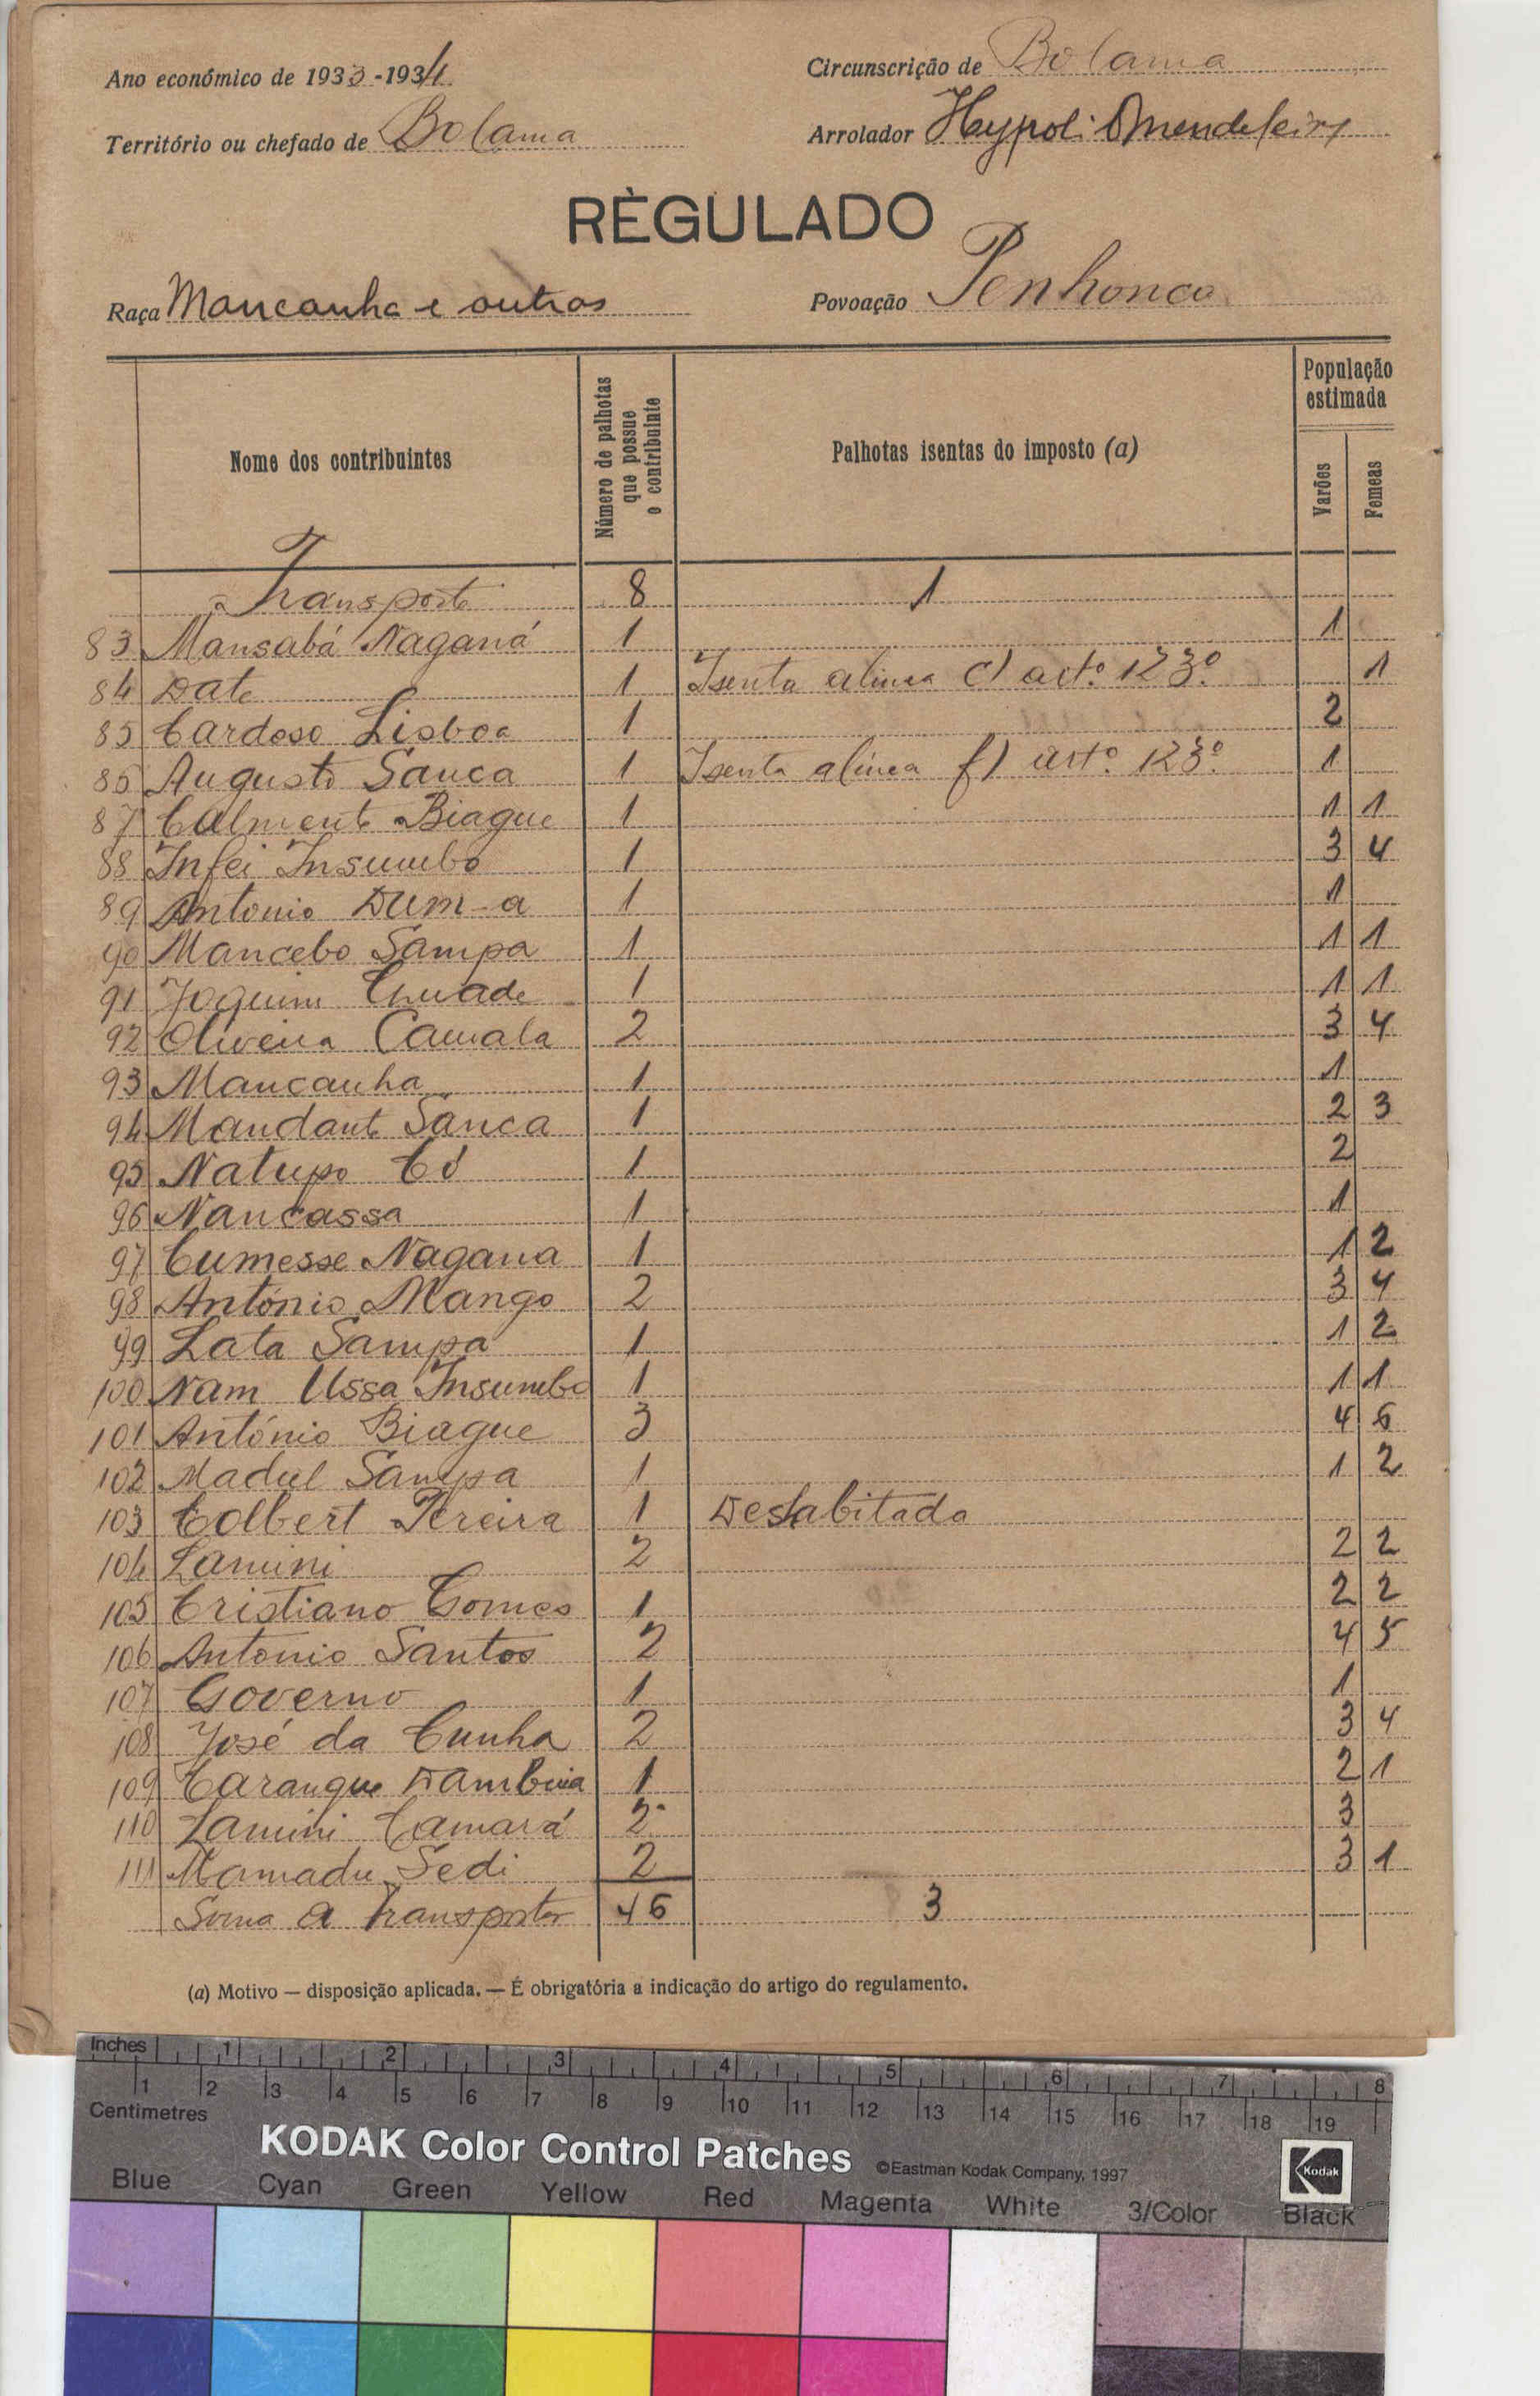 Ano económico de 1933-1934
Circunscrição de Bolama
Território ou chefado de Bolama
Arrolador
RÈGULADO
Raça Mancanha e outros
Povoação Penhonco
Nome dos contribuintes
Número de palhotas que possue o contribuinte
Palhotas isentas do imposto (a)
População estimada
Varões
Femeas
Transporte 8 1
83 Mansabá Naganá 1 1
84 Date 1 Isenta alinea c) arto. 123º. 1
85 Cardoso Lisboa 1 2
86 Augusto Sanca 1 Isenta alinea f) arto. 123º. 1
87 Calmente Biague 1 1 1
88 Infei Insumbo 1 3 4
89 Antonio Dum-a 1 1
90 Mancebo Sampa 1 1 1
91 Joquim 1 1 1
92 Oliveira Camala 2 3 4
93 Mancanha 1 1
94 Mandante Sanca 1 2 3
95 Natupo Có 1 2
96 Nancassa 1 1
97 Cumesse Nagana 1 1 2
98 António Mango 2 3 4
99 Lata Sampa 1 1 2
100 Nam Ussa Insumbo 1 1 1
101 António Biague 3 4 6
102 Madul Sampa 1 1 2
103 Colbert Pereira 1 Deshabitada
104 Lamini 2 2 2
105 Cristiano Gomes 1 2 2
106 Antonio Santos 2 4 5
107 Governo 1 1
108 José da Cunha 2 3 4
109 Carangue 1 2 1
110 Lamini Camará 2 3
111 Mamadu Sedi 2 3 1
Soma a transportar 46 3
(a) Motivo — disposição aplicada. — É obrigatória a indicação do artigo do regulamento.
Inches 1 2 3 4 5 6 7 8
1 2 3 4 5 6 7 8 9 10 11 12 13 14 15 16 17 18 19
Centimetres
KODAK Color Control Patches ©Eastman Kodak Company, 1997 Kodak
Blue Cyan Green Yellow Red Magenta White 3/Color Black